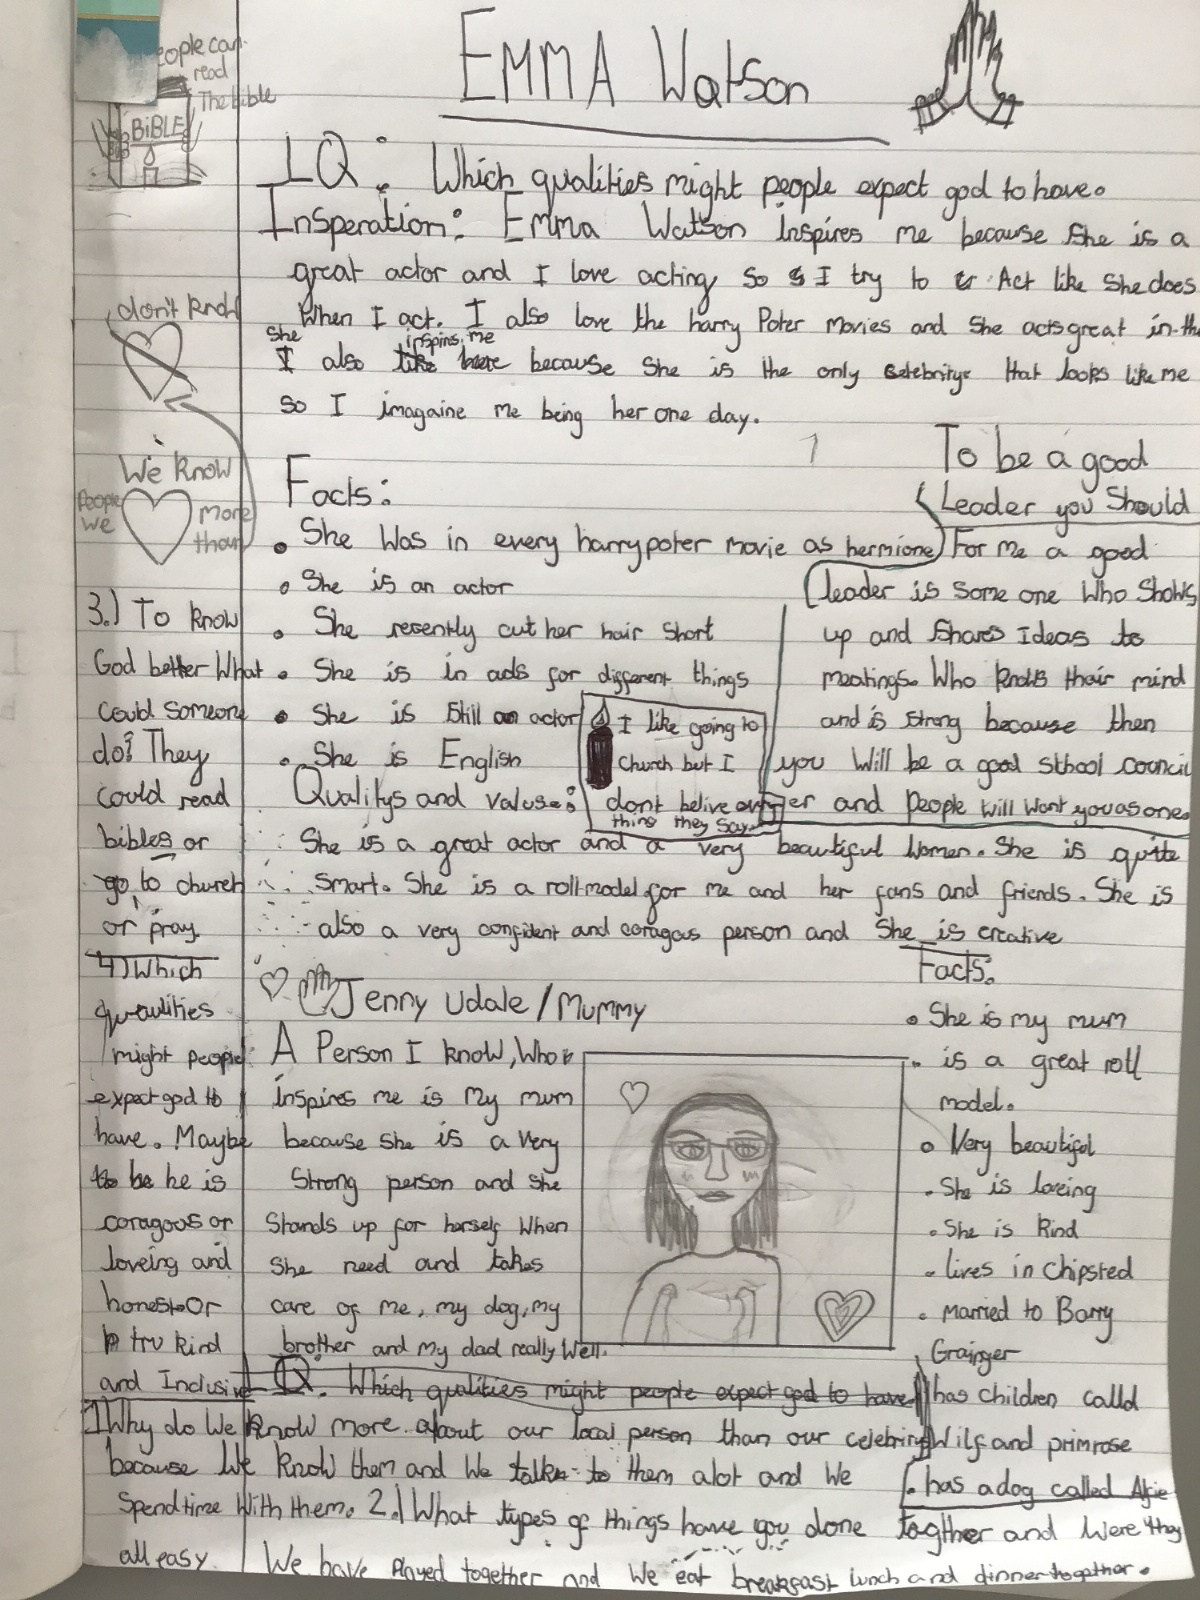 EMMA Watson
people can
read
The bible
BiBLE
IQ: Which qualities might people expect god to have.
Insperation: Emma Watson Inspires me because she is a
great actor and I love acting so I try to Act like she does
When I act. I also love the harry Poter Movies and she acts great in the
She also inspins me because she is the only celebritye that looks like me
so I imagaine me being her one day.
don't know
We know
People
we
more
than
Facts:
• She Was in every harrypoter movie as hermione
• She is an actor
• She recently cut her hair short
• She is in ads for different things
• She is still an actor
• She is English
To be a good
Leader you Should
For me a good
leader is some one Who Shows
up and Shares Ideas to
meatings. Who knows their mind
and is strong because then
you Will be a good sthool council
er and People will want you as one.
I like going to
church but I
dont belive every
thing they say.
Qualitys and valuse:
She is a great actor and a very beautiful Women. She is quite
Smart. She is a rollmodel for me and her fans and friends. She is
also a very confident and coragous person and She is creative
3.) To know
God better What
could someone
do? They
could read
bibles or
go to church
or pray.
4) Which
quaulities
might people
expect god to
have. Maybe
to be he is
coragous or
loveing and
honest. Or
tru kind
and Inclusive
Jenny Udale / Mummy
A Person I know, Who
inspires me is My mum
because she is a very
Strong person and she
Stands up for herself When
She need and takes
care of me, my dog, my
brother and my dad really Well.
Facts:
• She is my mum
• is a great roll
model.
• Very beautiful
• She is loveing
• She is kind
• lives in chipsted
• married to Barry
Grainger
has children calld
Wilf and primrose
• has a dog called Alfie
Q. Which qualities might people expect god to have
1 Why do We know more about our local person than our celebrity
because We know them and We talk to them alot and We
Spend time With them. 2.) What types of things have you done togther and Were they
all easy. We have Played together and We eat breakfast lunch and dinner together.